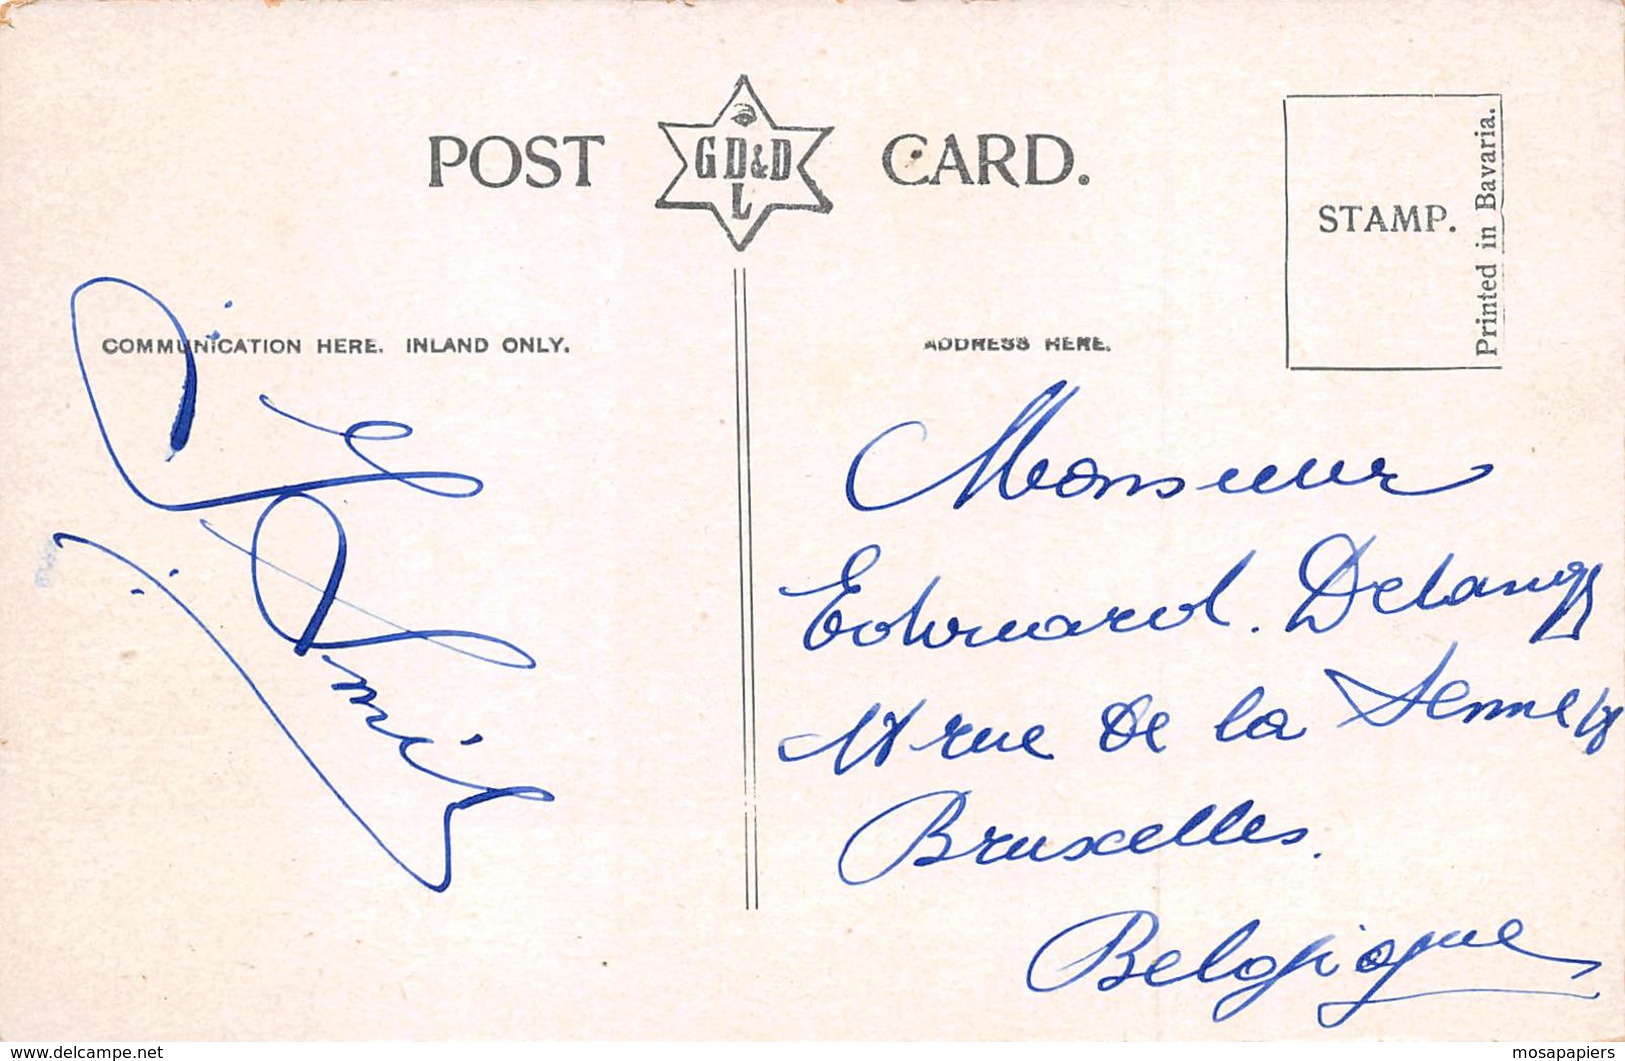 POST CARD.
GD&D
L
STAMP.
Printed in Bavaria.
COMMUNICATION HERE. INLAND ONLY.
ADDRESS HERE.
Monsieur
Edouard. Delange
rue de la Senne
Bruxelles.
Belgique
www.delcampe.net
mosapapiers